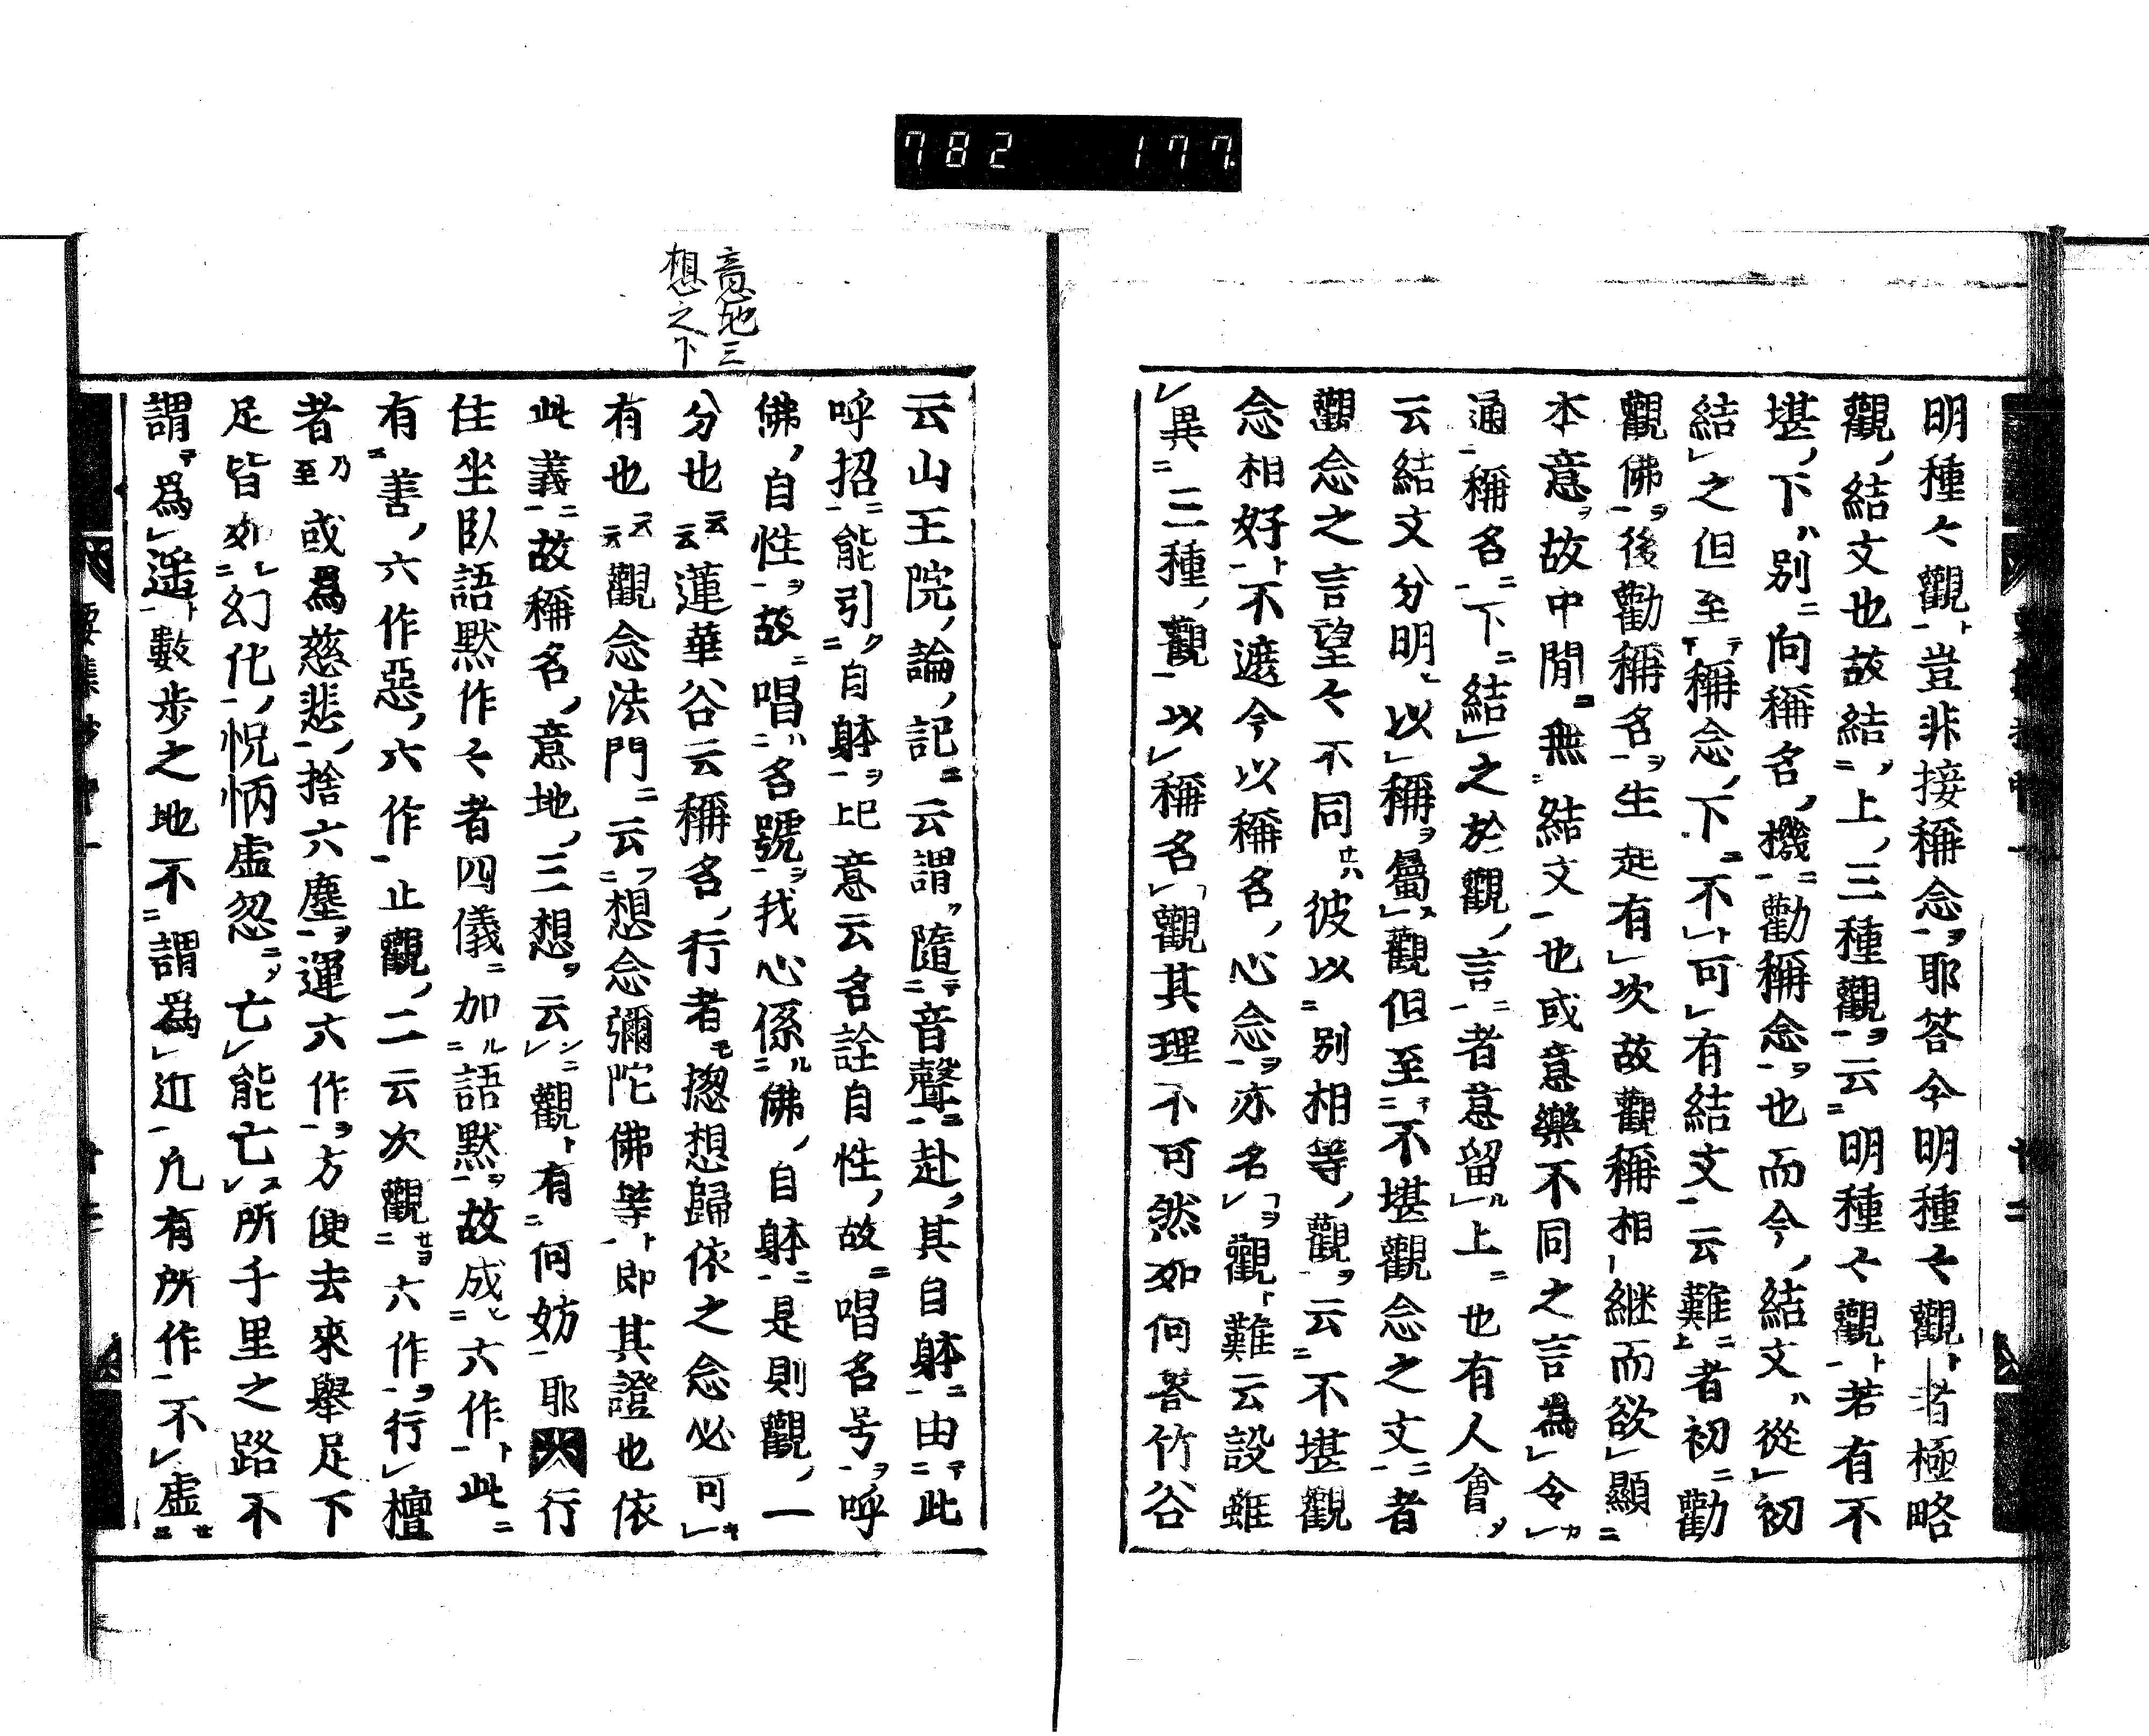 782 177
明種々觀豈非接稱念耶答今明種々觀者極略
觀結文也故結上三種觀云明種々觀若有不
堪下別向稱名機勸稱念也而今結文從初
結之但至稱念下不可有結文云難者初勸
觀佛後勸稱名生起有次故觀稱相継而欲顯
本意故中間無結文也或意樂不同之言為令
通稱名下結之於觀言者意留上也有人會
云結文分明以稱屬觀但至不堪觀念之文者
觀念之言望々不同彼以別相等觀云不堪觀
念相好不遮今以稱名心念亦名觀難云設雖
異三種觀以稱名觀其理不可然如何答竹谷
意地三
想之下
云山王院論記云謂隨音聲赴其自躰由此
呼招能引自躰已意云名詮自性故唱名号呼
佛自性故唱名號我心係佛自躰是則觀一
分也云云蓮華谷云稱名行者揔想歸依之念必可
有也云云觀念法門云想念彌陀佛等即其證也依
此義故稱名意地三想云觀有何妨耶行
住坐臥語默作々者四儀加語默故成六作此
有善六作惡六作止觀二云次觀六作行檀
者乃至或爲慈悲捨六塵運六作方便去來舉足下
足皆如幻化怳恍虛忽亡能亡所千里之路不
謂爲遥數步之地不謂爲近凡有所作不虛